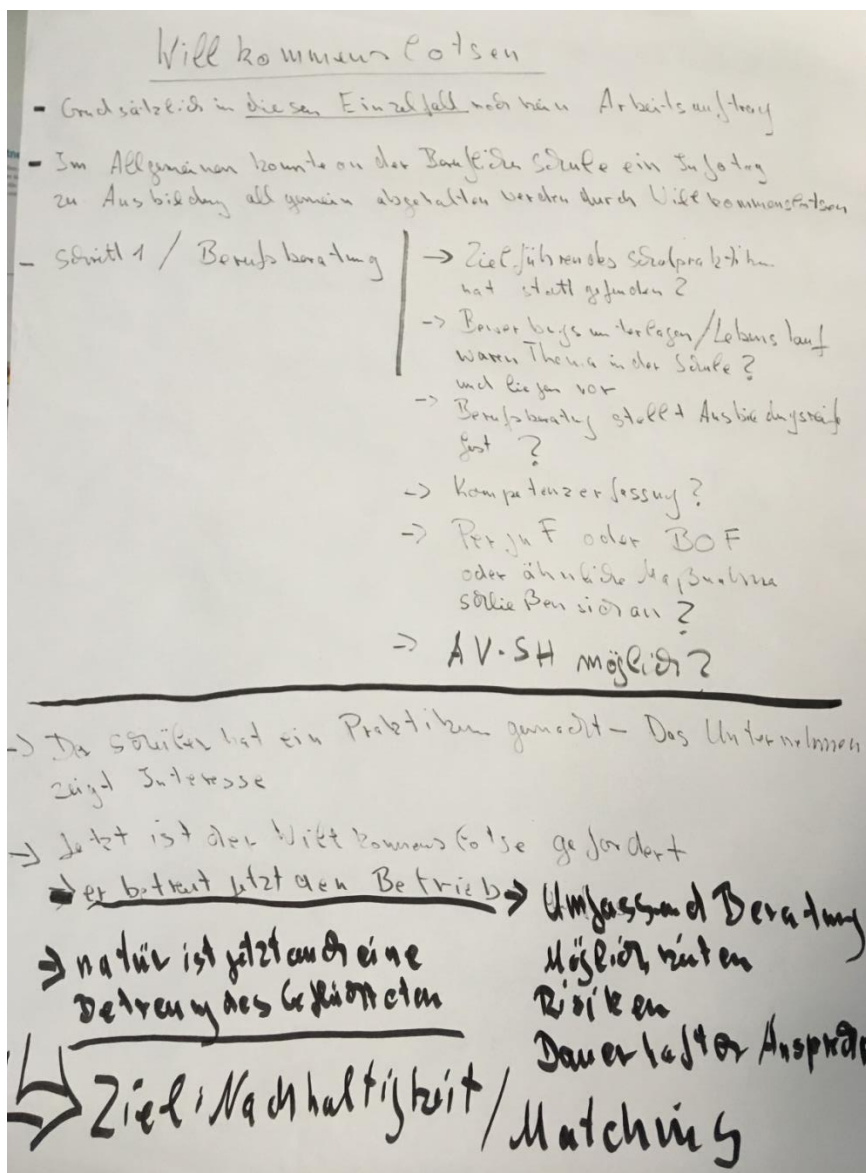 Willkommenslotsen
- Grundsätzlich in diesen Einzelfall noch kein Arbeitsauftrag
- Im Allgemeinen könnte an der Berufliche Schule ein Infotag
zu Ausbildung allgemein abgehalten werden durch Willkommenslotsen
- Schritt 1 / Berufsberatung
-> Zielführendes Schulpraktikum
hat stattgefunden?
-> Bewerbungsunterlagen/Lebenslauf
waren Thema in der Schule?
und liegen vor
-> Berufsberatung stellt Ausbildungsreife
fest ?
-> Kompetenzerfassung?
-> PerjuF oder BOF
oder ähnliche Maßnahme
schließen sich an?
-> AV-SH möglich?
-> Der Schüler hat ein Praktikum gemacht - Das Unternehmen
zeigt Interesse
-> Jetzt ist der Willkommenslotse gefordert
er betreut jetzt den Betrieb ->
Umfassend Beratung
Möglichkeiten
Risiken
Dauerhafter Ansprech
-> natür ist jetzt auch eine
Betreuung des Geflüchteten
Ziel: Nachhaltigkeit / Matching